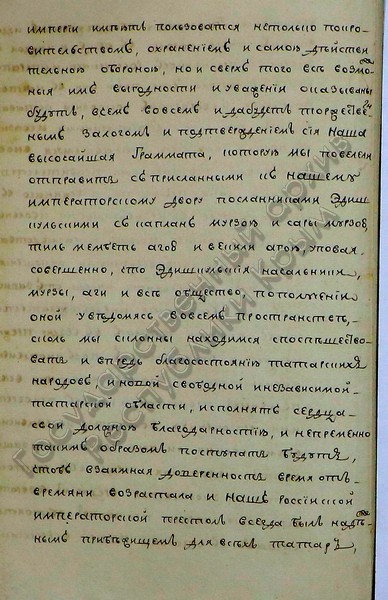 имперіи имѣтъ ползоватся нетолько покро-
вительствомъ, охраненіемъ и самою дѣйстви
тельною обороною, но и сверхъ того всѣ возмо
ныя имъ выгодности и уваженіи оказываны
будутъ, всемъ вовсемъ и дабудетъ торжестве
нымъ залогомъ и подтвержденіемъ сія наша
высочайшая Граммата, которую мы повелели
отправить съ присланными къ нашему
императорскому двору посланниками Эдиш
кульскими съ капланъ мурзою и сары мурзою,
тиль мембетъ агою и векили агою, уповая
совершенно, что Эдишкульскія начальники,
мурзы, аги и все общество, по полученіи
оной уведомясь вовсемъ пространстве,
сколь мы склонны находимся споспешество
вать и впредь благосостоянію татарскихъ
народовъ, и новой свободной инезависимой
татарской области, исполнятъ сердца
свои должною благодарностію, и непременно
такимъ образомъ поступать будутъ,
чтобъ взаимная доверенность время отъ
времяни возрастала и нашъ Россійской
императорской престолъ всегда былъ надеж
нымъ прибежищемъ для всехъ татаръ,
Государственный архив
Республики Крым